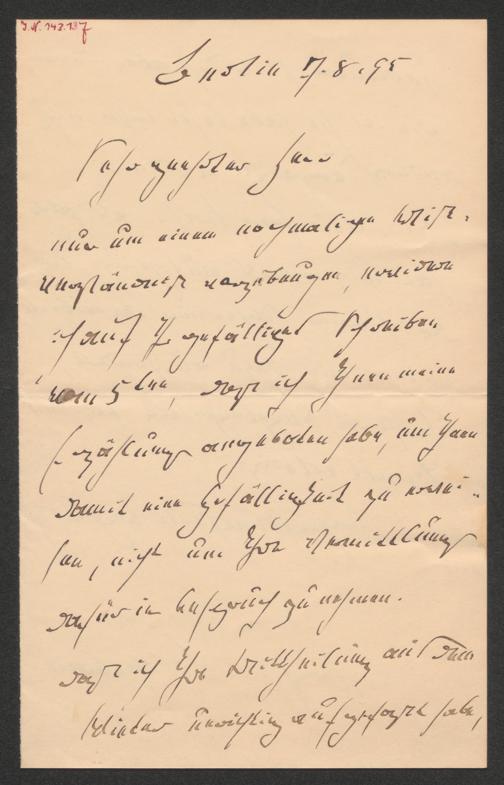 J.N. 143.137
Berlin 7.8.95
Sehr geehrter Herr
nur um einem nochmaligen Miß-
verständniß vorzubeugen, erwidere
ich auf Ihr gefälliges Schreiben
vom 5ten, daß ich Ihnen meine
Erzählung angeboten habe, um Ihnen
damit eine Gefälligkeit zu erwei-
sen, nicht um Ihre Vermittlung
dafür in Anspruch zu nehmen.
Daß ich Ihre Mittheilung aus dem
Winter unrichtig aufgefaßt habe,